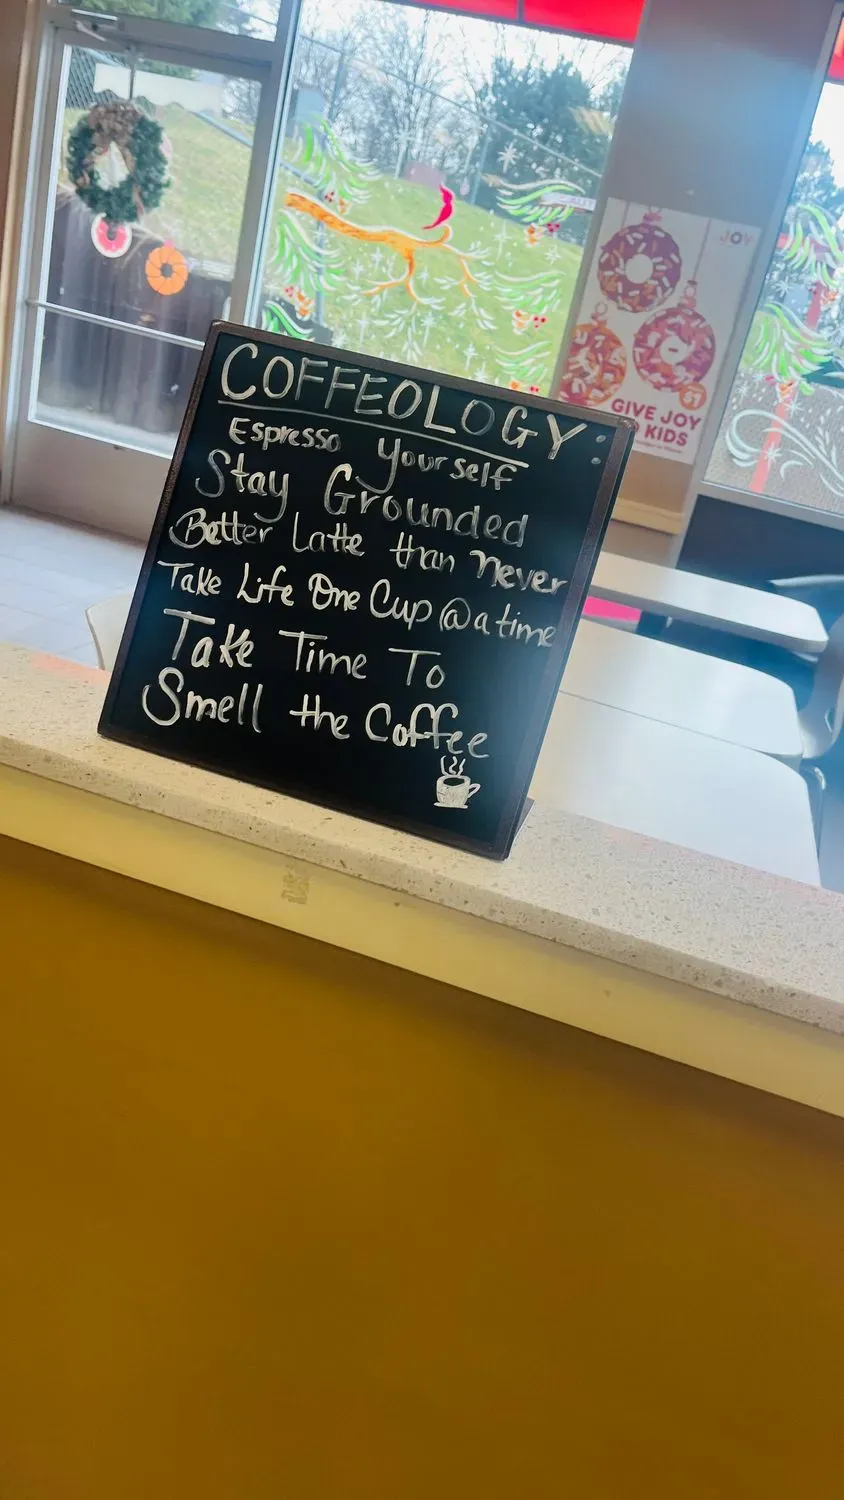 COFFEOLOGY:
Espresso Yourself
Stay Grounded
Better Latte than never
Take Life One Cup @ a time
Take Time To
Smell the Coffee
JOY
GIVE JOY
KIDS